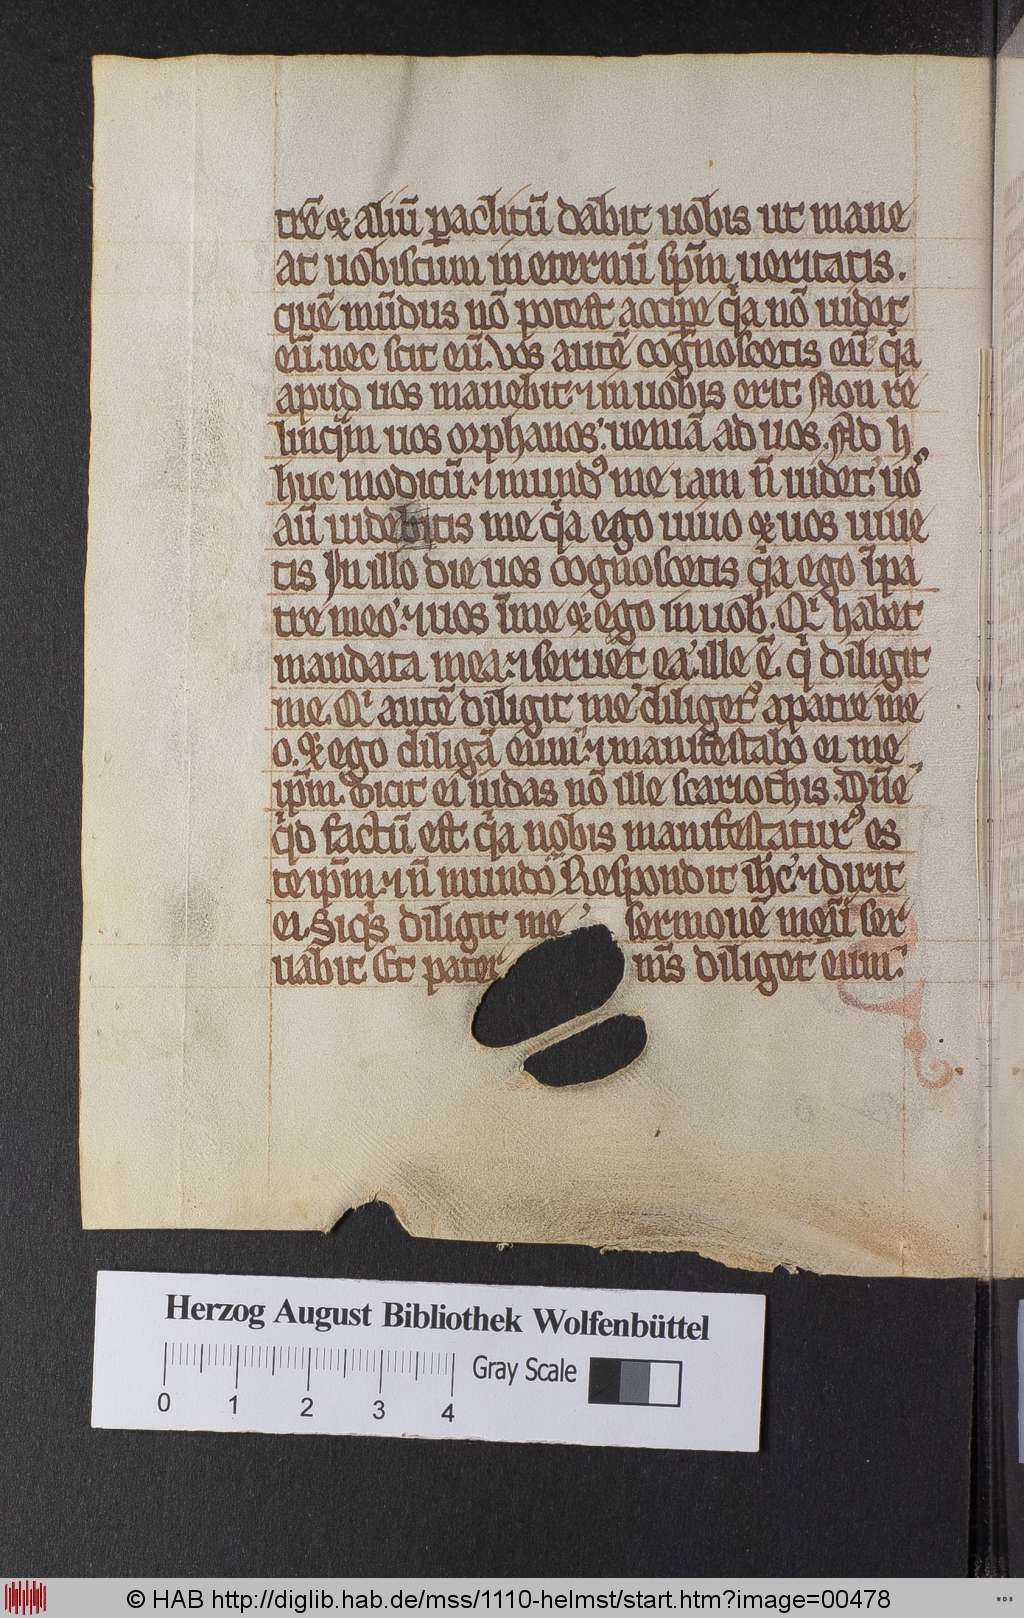 trē ⁊ aliū paclitū dabit uobis ut mane
at uobiscum in eternū spm̄ ueritatis.
quē mūdus nō potest accipe qia nō uidet
eū. nec scit eū. Vos autē cognoscetis eū qia
apud uos manebit. ⁊ in uobis erit. Non re
linqm̄ uos orphanos. ueniā ad uos. Ad h
huc modicū. ⁊ mundꝰ me iam n̄ uidet. uoꝰ
aū uidebitis me qia ego uiuo ⁊ uos uiue
tis In illo die uos cognoscetis qia ego ī pa
tre meo. ⁊ uos ī me ⁊ ego in uob. Qi habet
mandata mea. ⁊ seruet ea. ille ē. qi diligit
me. Qi autē diligit me diligetꝰ a patre me
o. ⁊ ego diligā eum. ⁊ manifestabo ei me
ipm̄. Dicit ei iudas nō ille scariothis. Dn̄e
qid factū est. qia nobis manifestaturꝰ es
te ipm̄. ⁊ n̄ mundo Respondit ih̄c. ⁊ dixit
ei. Siqis diligit me sermonē meū ser
uabit. Et pater ms̄ diliget eum.
Herzog August Bibliothek Wolfenbüttel
Gray Scale
0 1 2 3 4
© HAB http://diglib.hab.de/mss/1110-helmst/start.htm?image=00478